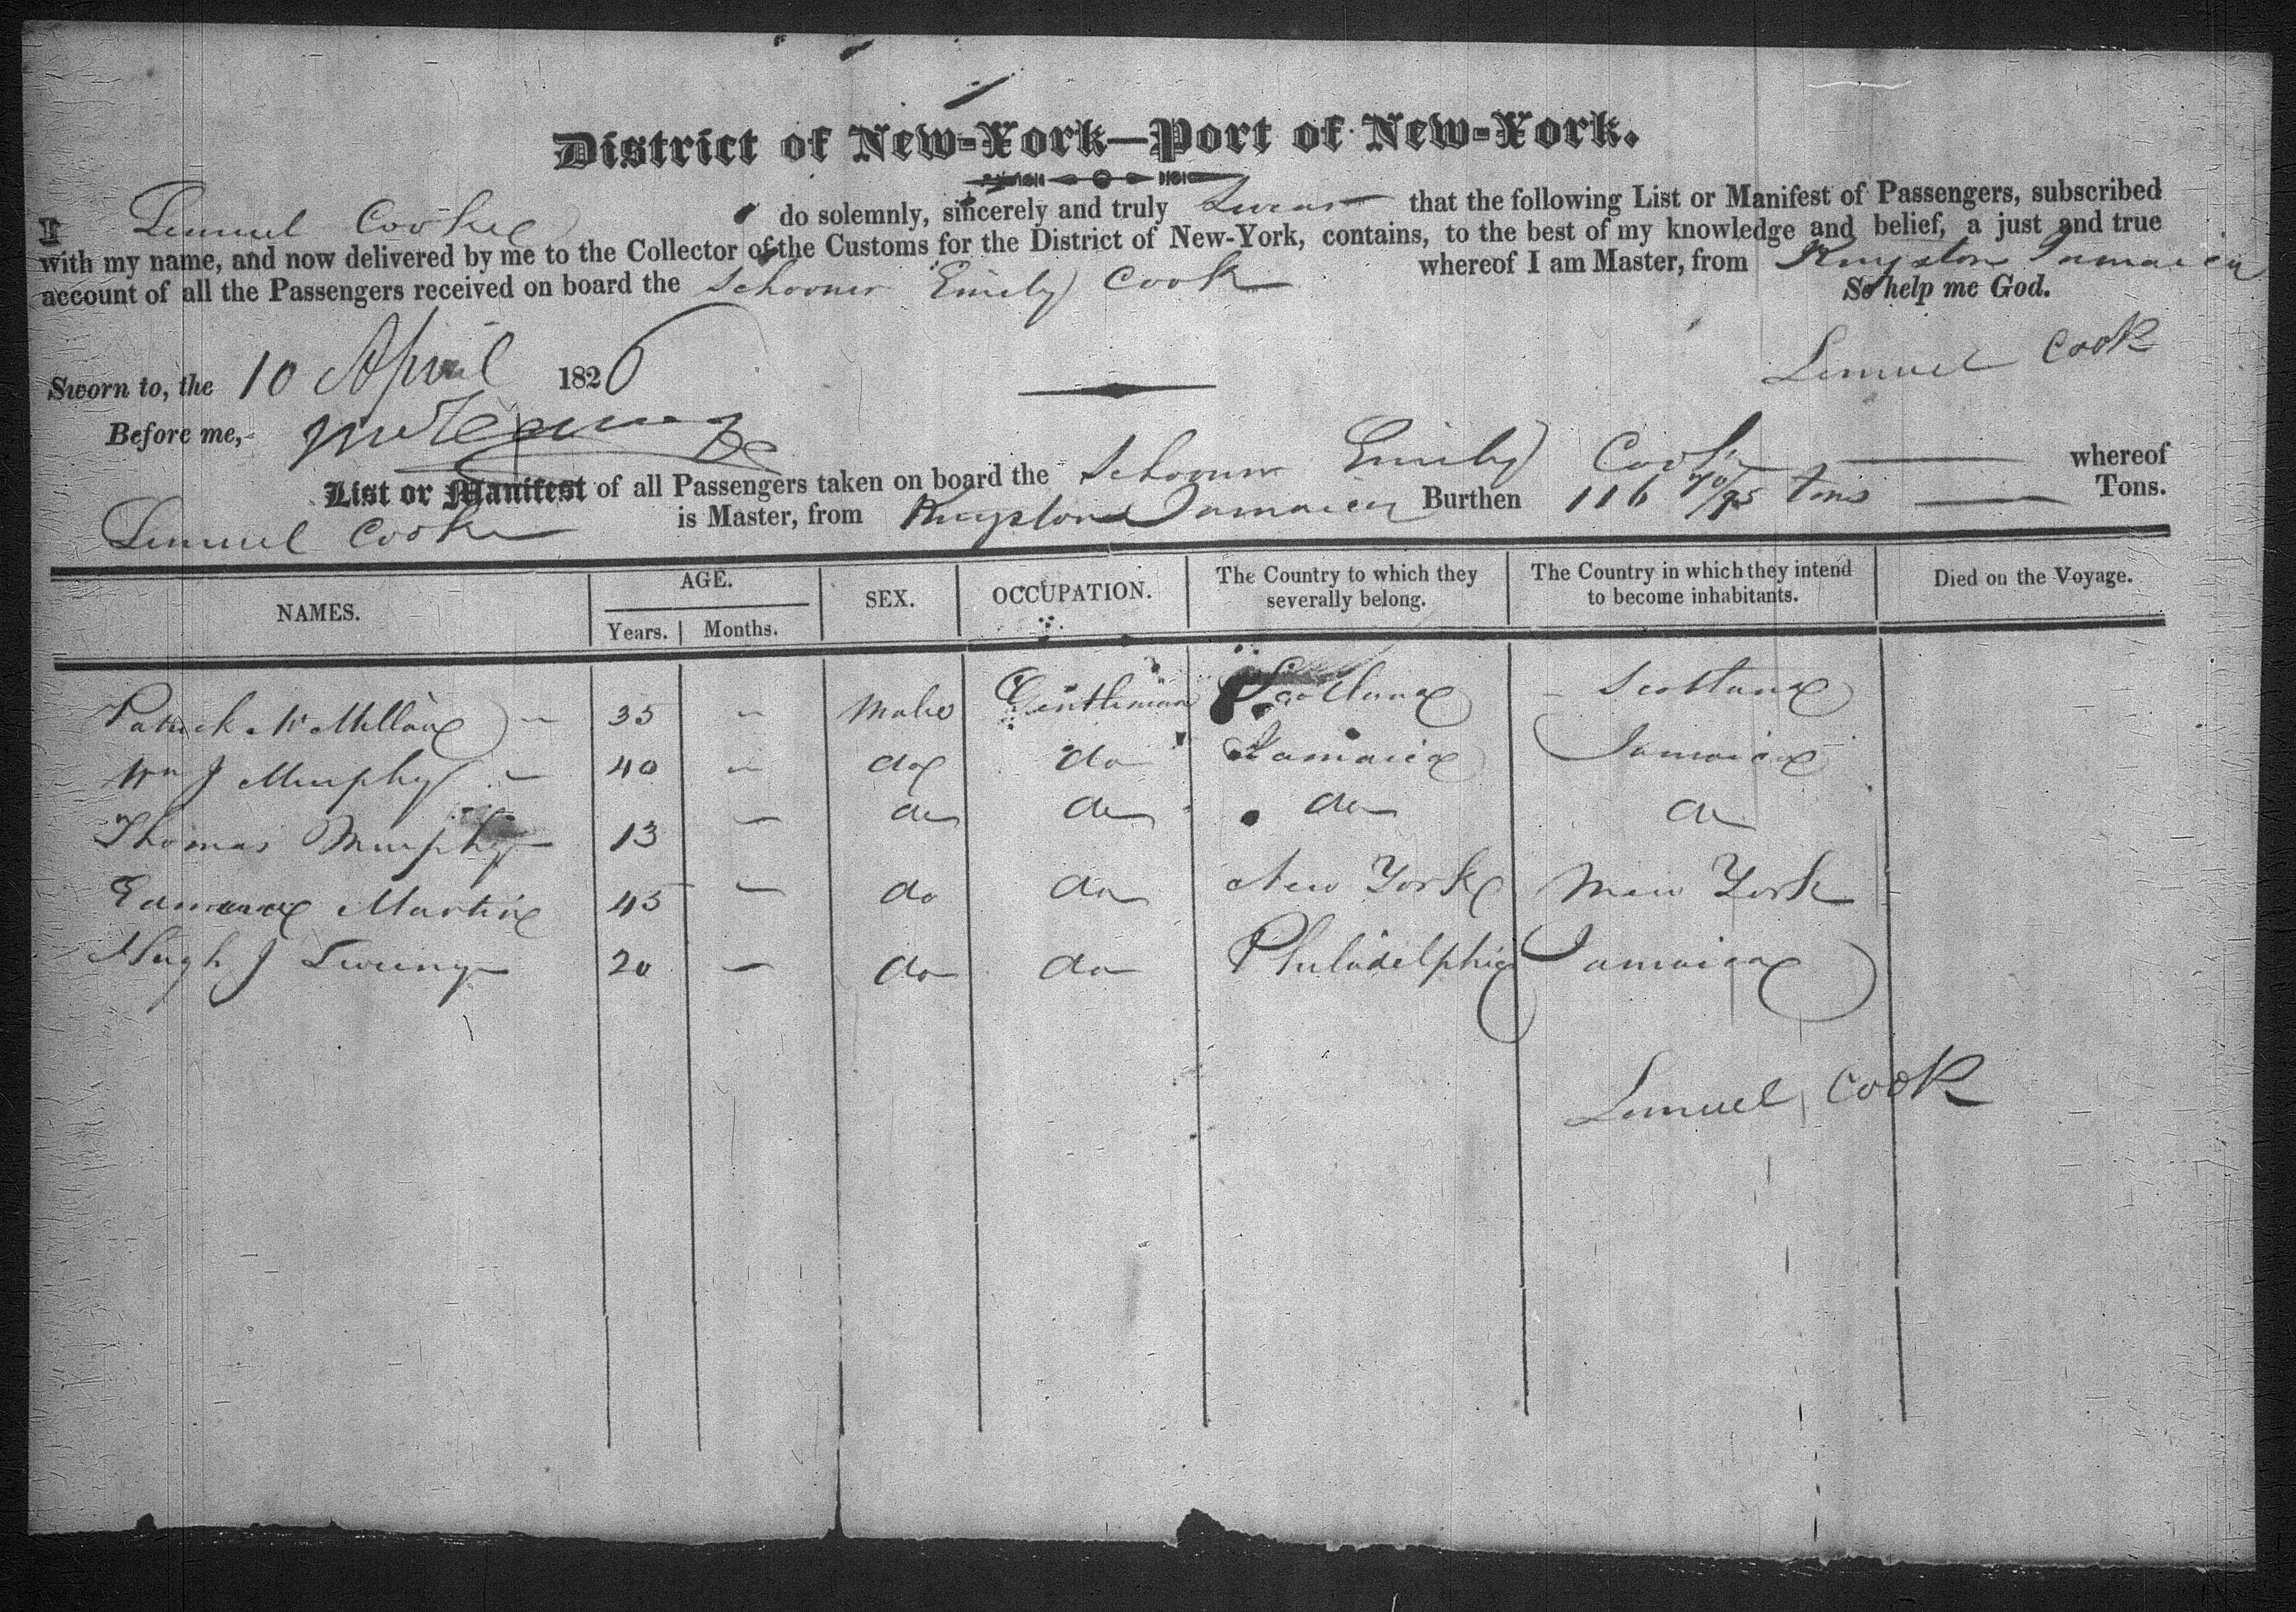 District of New-York—Port of New-York.
I Lemuel Cooke do solemnly, sincerely and truly Swear that the following List or Manifest of Passengers, subscribed
with my name, and now delivered by me to the Collector of the Customs for the District of New-York, contains, to the best of my knowledge and belief, a just and true
account of all the Passengers received on board the Schooner Emily Cook whereof I am Master, from Kingston Jamaica
So help me God.
Lemuel Cook
Sworn to, the 10 April 1826
Before me,
List or Manifest of all Passengers taken on board the Schooner Emily Cook whereof
Lemuel Cook is Master, from Kingston Jamaica Burthen 116 70/95 tons Tons.
NAMES. AGE. Years. Months. SEX. OCCUPATION. The Country to which they severally belong. The Country in which they intend to become inhabitants. Died on the Voyage.
Patrick McMillan – 35 – Male Gentleman Scotland Scotland
Wm J Murphy – 40 – do do Jamaica Jamaica
Thomas Murphy 13 – do do do do
Edmund Martin 45 – do do New York New York
Hugh J Sweeny 20 – do do Philadelphia Jamaica
Lemuel Cook